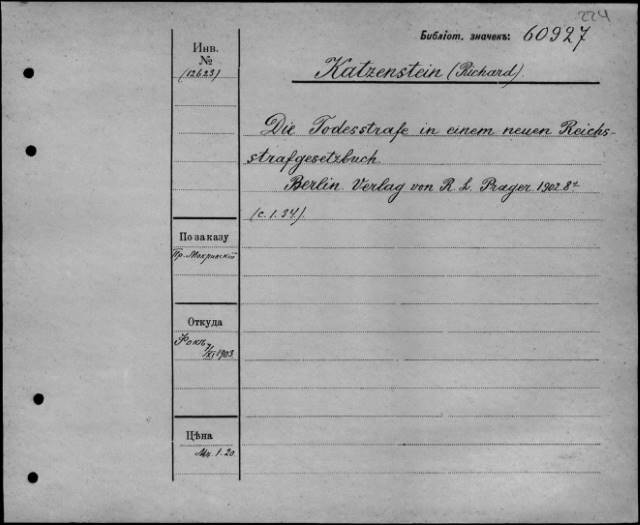 224
Библіот. значекъ: 60927
Инв.
№
(12623)
Katzenstein (Richard).
Die Todesstrafe in einem neuen Reichs-
strafgesetzbuch
Berlin Verlag von R. L. Prager 1902 8º
(c. 1. 34).
По заказу
Пр. Мокринскій
Откуда
Рокъ 7/XI 1903
Цѣна
Мк. 1. 20.